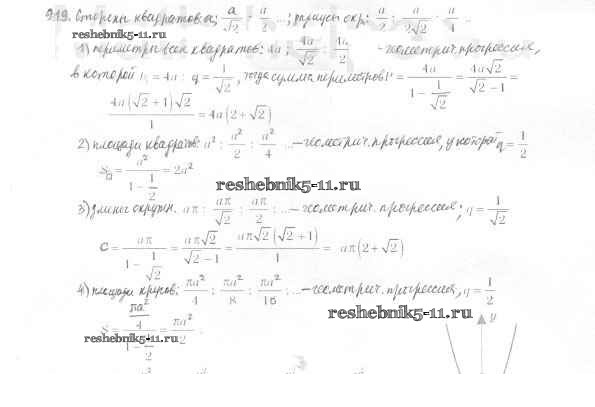 919. Стороны квадратов a; a/√2; a/2 ...; радиусы окр: a/2; a/2√2; a/4 ..
1) периметры всех квадратов: 4a; 4a/√2; 4a/2 - геометрич. прогрессия,
в которой b₁ = 4a; q = 1/√2, тогда сумма периметров P = 4a/(1 - 1/√2) = 4a√2/(√2-1) =
4a(√2+1)√2/1 = 4a(2+√2)
2) площади квадратов: a²; a²/2; a²/4 ...- геометрич. прогрессия, у которой q = 1/2
S = a²/(1 - 1/2) = 2a²
reshebnik5-11.ru
3) длины окружн. aπ; aπ/√2; aπ/2; ...- геометрич. прогрессия; q = 1/√2
C = aπ/(1 - 1/√2) = aπ√2/(√2-1) = aπ√2(√2+1)/1 = aπ(2+√2)
4) площади кругов: πa²/4; πa²/8; πa²/16; ...- геометрич. прогрессия, q = 1/2
reshebnik5-11.ru
S = (πa²/4)/(1 - 1/2) = πa²/2.
reshebnik5-11.ru
y